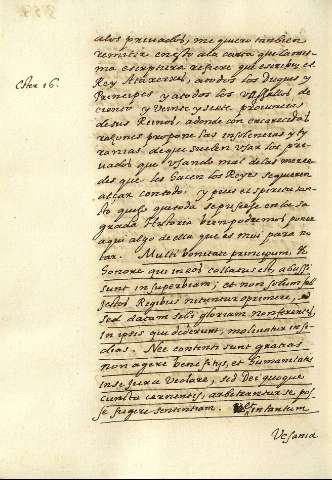 a los privados, me quiero tambien
remitir en esto a la carta que la mis-
ma escriptura refiere que escribio el
Ester 16.
Rey Ataxerses, a todos los Duques y
Principes y a todos los vassallos de
ciento y veinte y siete provincias
de sus Reinos, adonde con encarecidas
razones propone las insolencias y ty-
ranias de que suelen usar los pri-
vados que usando mal de las merce-
des que les hacen los Reyes se quieren
alçar con todo; y pues el spiritu san-
to quiso que toda se pusiese en la sa-
grada historia bien podremos poner
aqui algo de ella que es mui para no-
tar. Multi bonitate principum et
honore qui in eos collatus est, abussi
sunt in superbiam; et non solum sub-
jectos Regibus nituntur opprimere, sed
sed datam sibi gloriam non ferentes,
in ipsos qui dederunt, moliuntur insi-
dias. Nec contenti sunt gratias
non agere beneficijs, et humanitatis
in se jura violare, sed Dei quoque
cuncta cernentis, arbitrantur se pos-
se fugere sententiam. et in tantum
Vesania